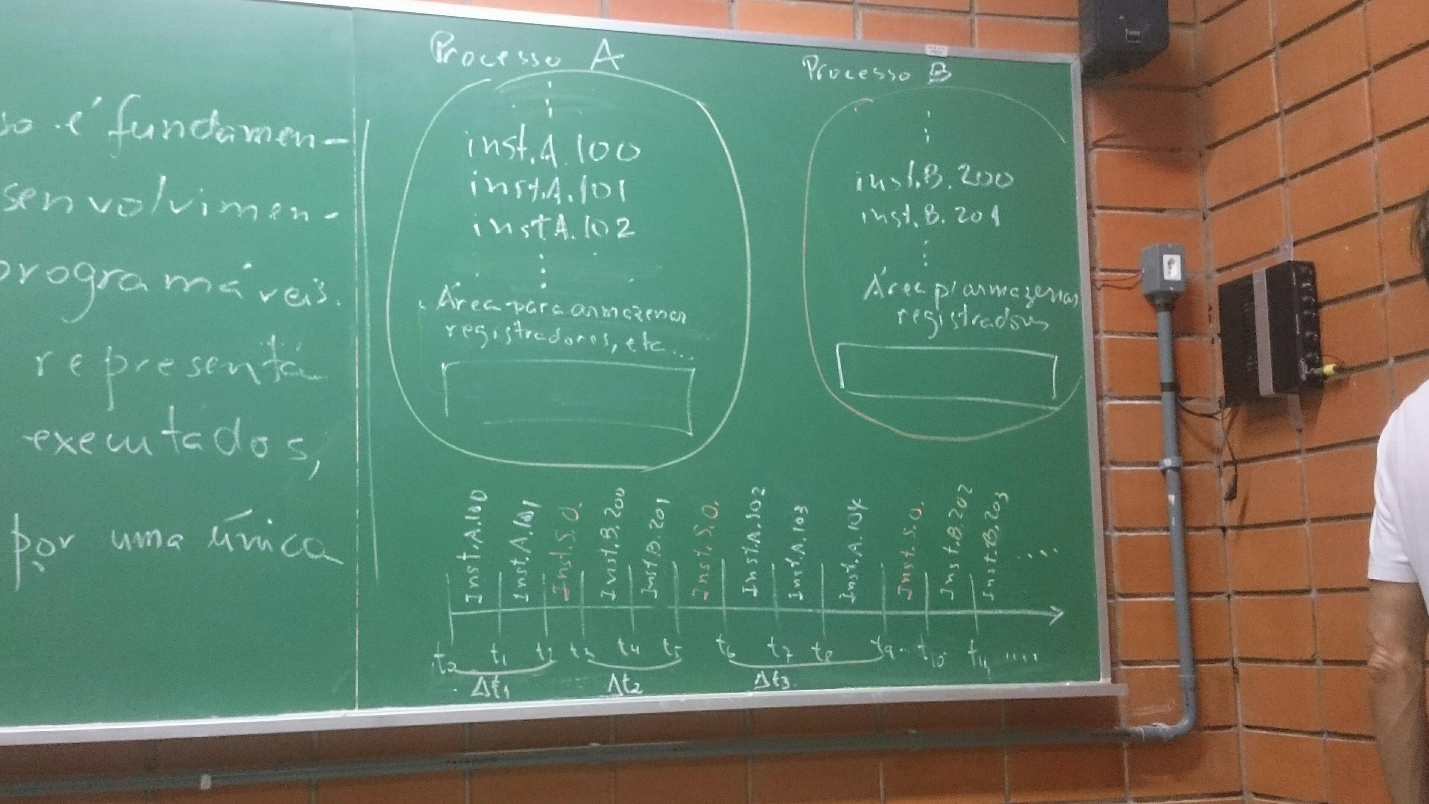 so é fundamen-
senvolvimen-
programáveis.
representa
executados,
por uma única
Processo A
inst.A.100
inst.A.101
instA.102
Área para armazenar
registradores, etc...
Processo B
inst.B.200
inst.B.201
Área p/ armazenar
registradores
Inst.A.100
Inst.A.101
Inst.S.O.
Inst.B.200
Inst.B.201
Inst.S.O.
Inst.A.102
Inst.A.103
Inst.A.104
Inst.S.O.
Inst.B.202
Inst.B.203
....
t0 t1 t2 t3 t4 t5 t6 t7 t8 t9 t10 t11 ....
Δt1 Δt2 Δt3